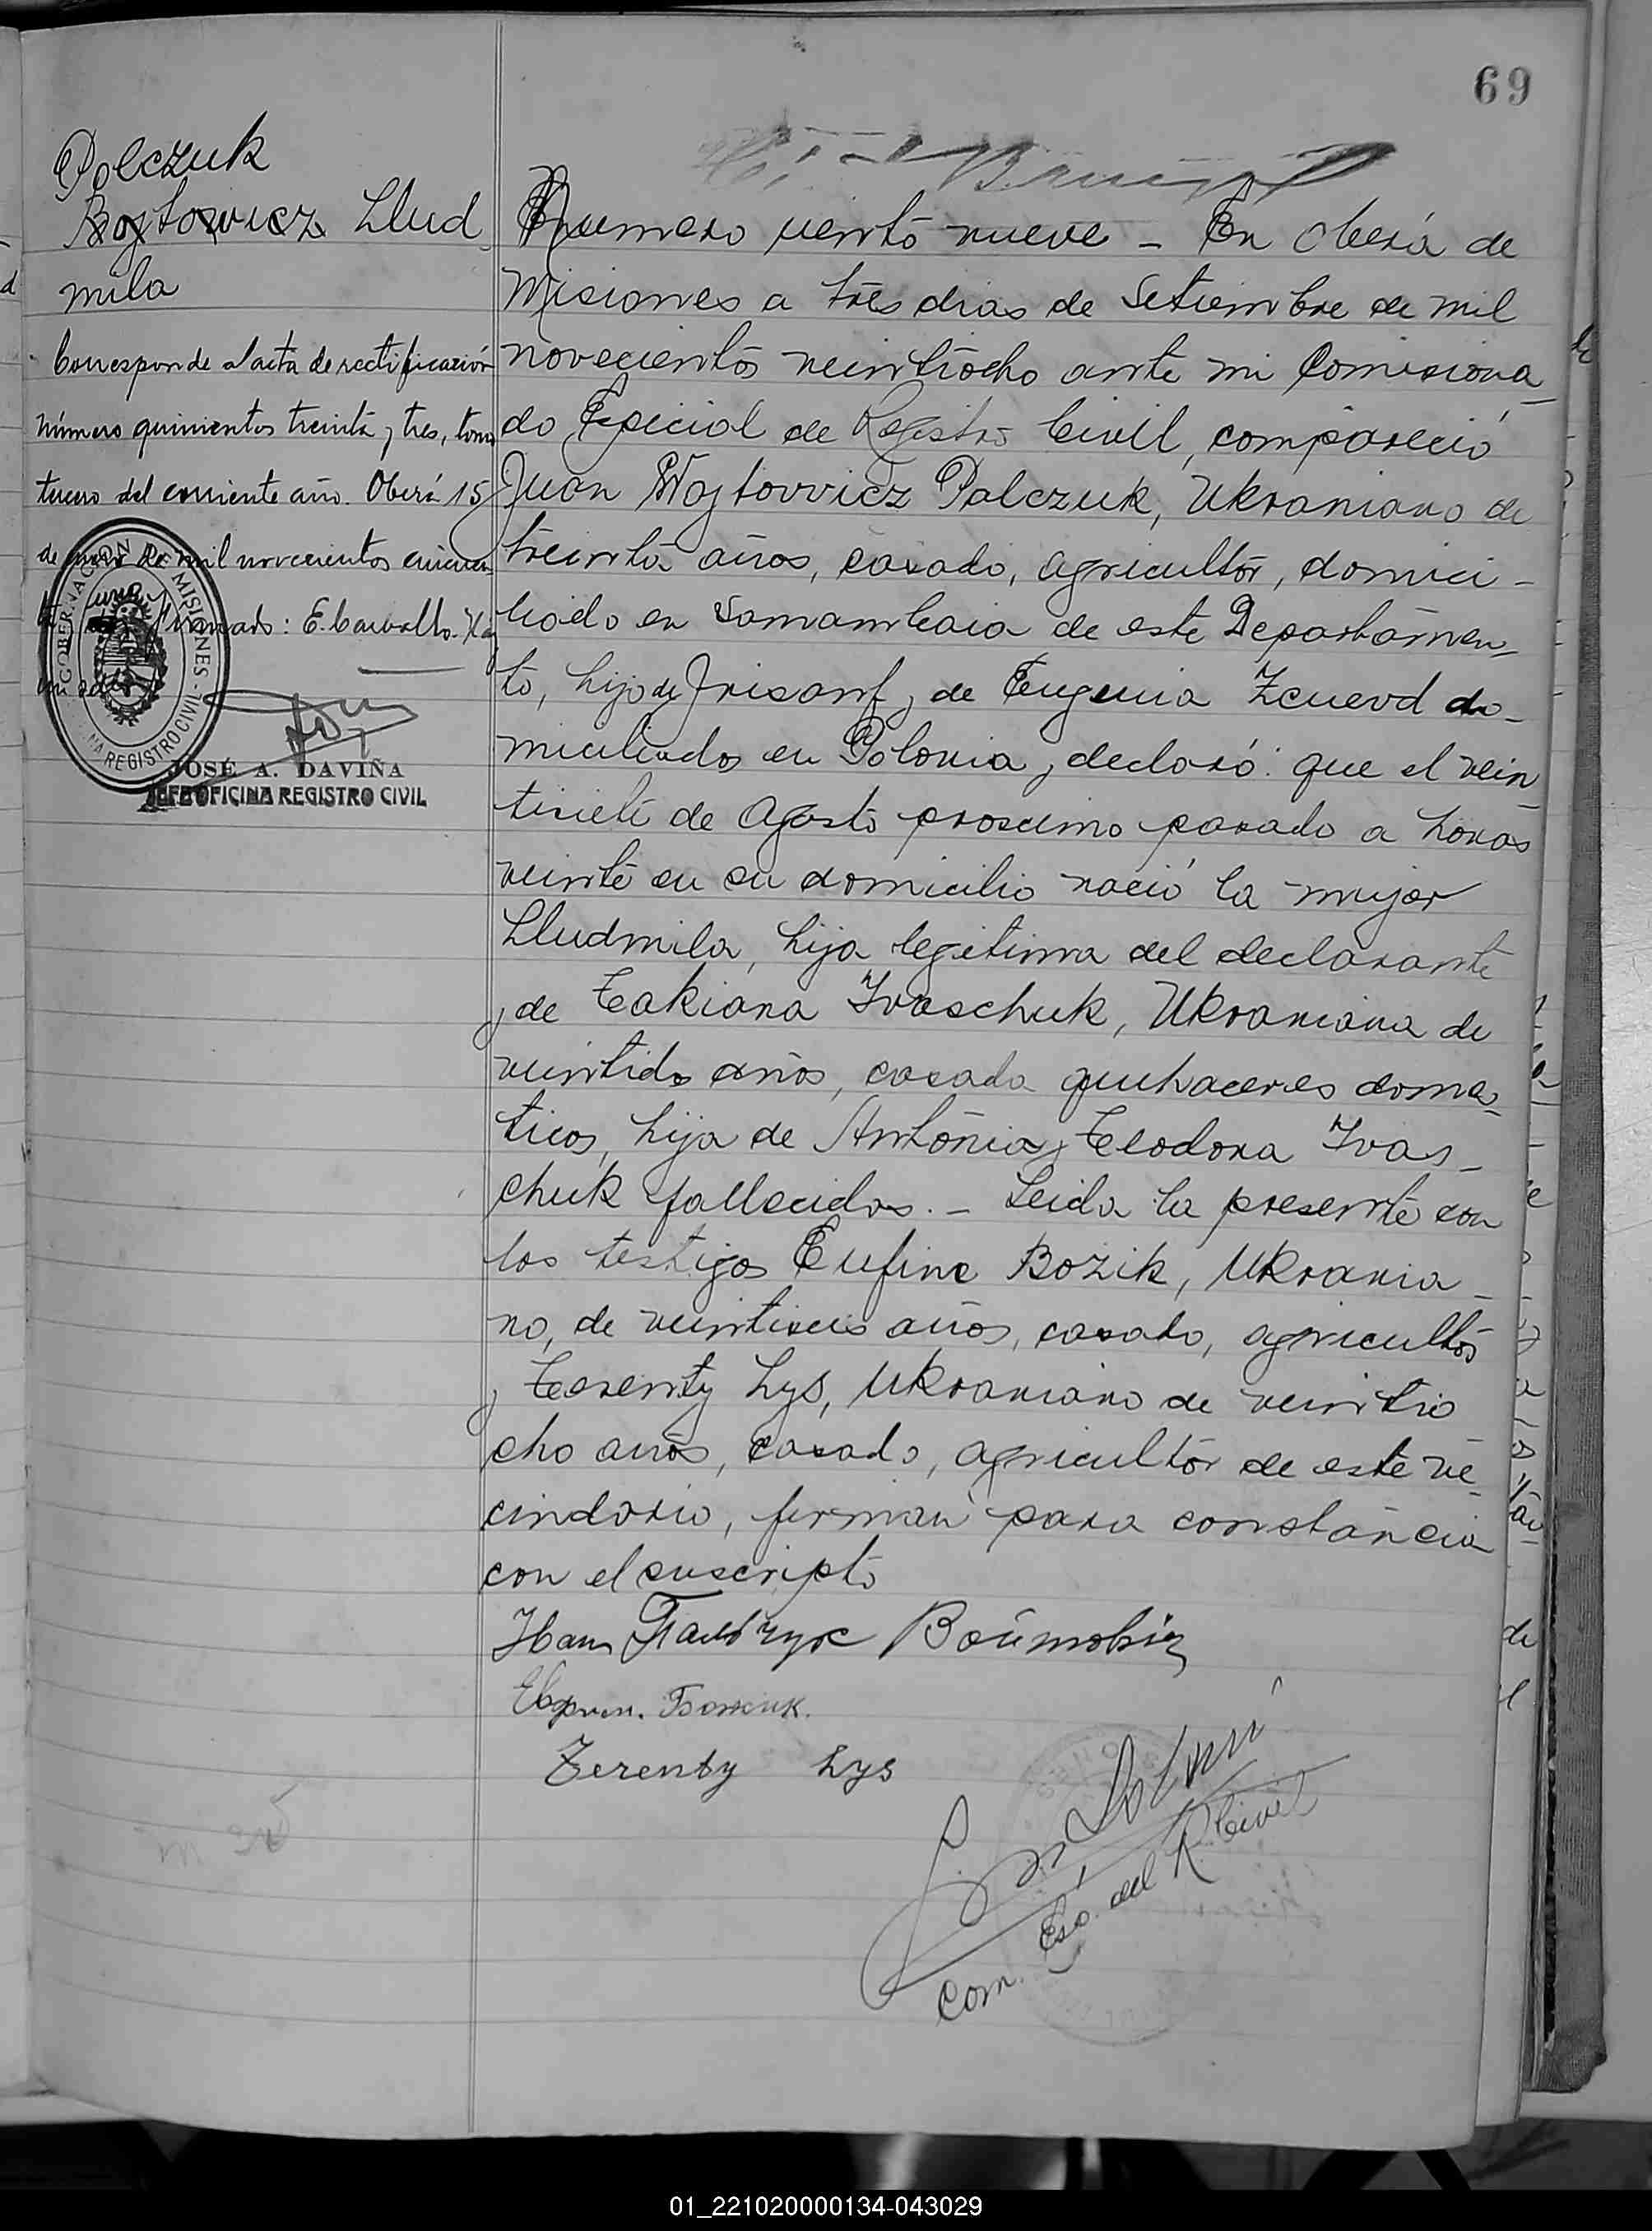 69
Polczuk
Bojtowicz Llud
mila
Corresponde al acta de rectificación
número quinientos treinta y tres, tomo
tercero del corriente año. Oberá 15
de enero de mil novecientos cincuen
ta y uno. Firmado: E. Carvallo. Hay
un sello
GOBERNACION DE MISIONES
REGISTRO CIVIL
JOSÉ A. DAVIÑA
JEFE OFICINA REGISTRO CIVIL
Numero ciento nueve - En Oberá de
Misiones a tres dias de Setiembre de mil
novecientos veintiocho ante mi Comisiona_
do Especial de Registro Civil, compareció
Juan Wojtovvicz Palczuk, Ukraniano de
treinta años, casado, agricultor, domici -
liado en Samambaia de este Departamen_
to, hijo de Jrisanf y de Eugenia Zcuevd do_
miciliados en Polonia, declaró: que el vein_
tisiete de Agosto prosimo pasado a horas
veinte en su domicilio nació la mujer
Lludmila, hija legitima del declarante
y de Takiana Ivaschuk, Ukraniana de
veintido años, casada quehaceres domes_
ticos, hija de Antonia y Teodora Ivas_
chuk fallecidos. - Leida la presente con
los testigos Eufine Bozik, Ukrania_
no, de veintiseis años, casado, agricultor
y Terenty Lys, Ukraniano de veintio
cho años, casado, agricultor de este ve_
cindario, firman para constancia
con el suscripto
Иван Пальчук Войтовіч
Евфим. Божик.
Terenty Lys
Com. Esp. del R. Civil
01_221020000134-043029